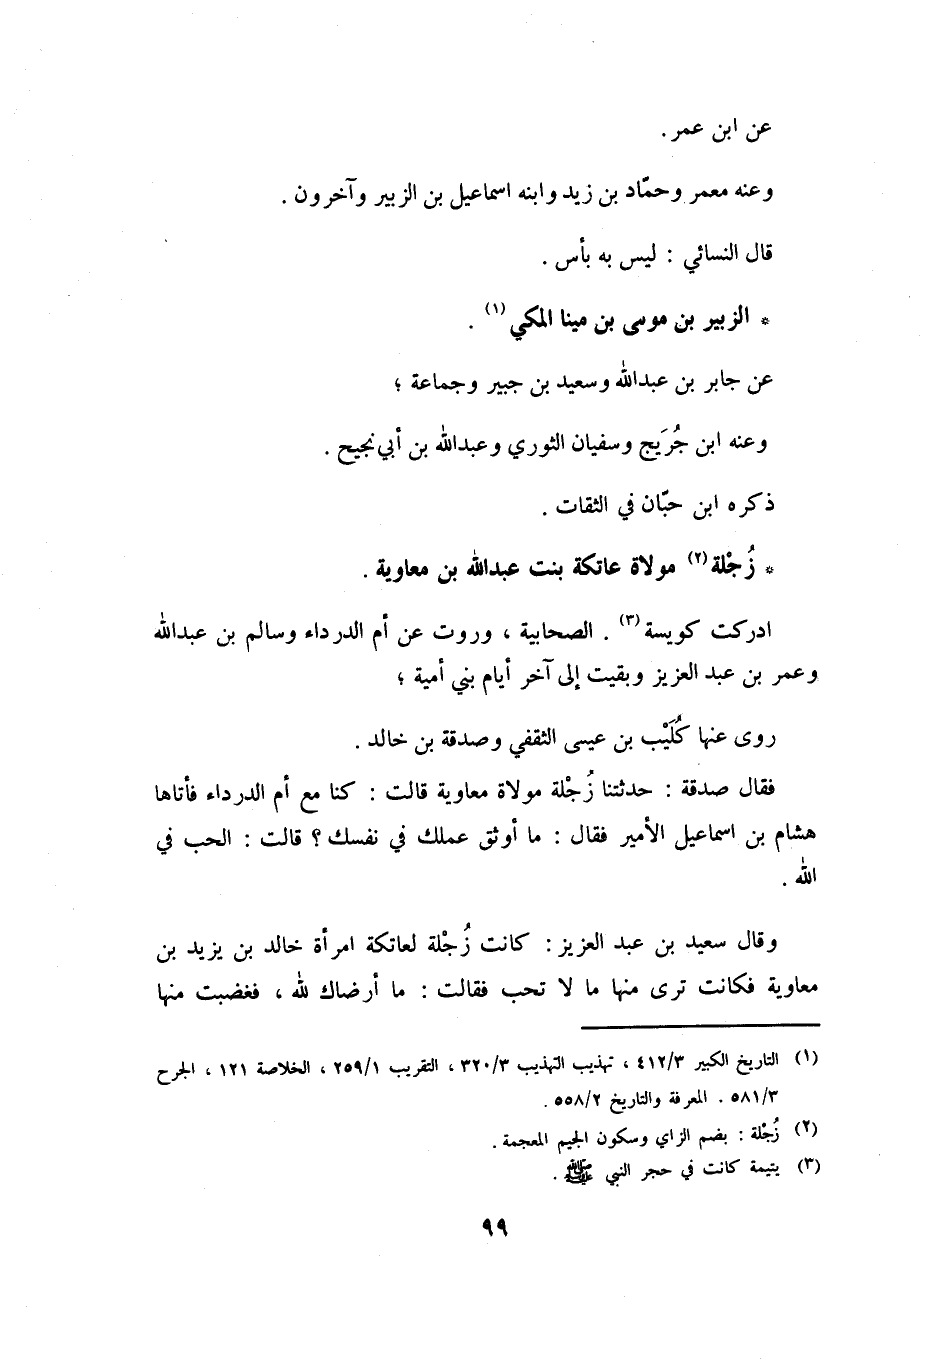 عن ابن عمر .
وعنه معمر وحمّاد بن زيد وابنه اسماعيل بن الزبير وآخرون .
قال النسائي : ليس به بأس .
* الزبير بن موسى بن مينا المكي (١) .
عن جابر بن عبدالله وسعيد بن جبير وجماعة ؛
وعنه ابن جُرَيج وسفيان الثوري وعبدالله بن أبي نجيح .
ذكره ابن حبّان في الثقات .
* زُجْلة (٢) مولاة عاتكة بنت عبدالله بن معاوية .
ادركت كويسة (٣) . الصحابية ، وروت عن أم الدرداء وسالم بن عبدالله
وعمر بن عبد العزيز وبقيت إلى آخر أيام بني أمية ؛
روى عنها كُلَيْب بن عيسى الثقفي وصدقة بن خالد .
فقال صدقة : حدثتنا زُجْلة مولاة معاوية قالت : كنا مع أم الدرداء فأتاها
هشام بن اسماعيل الأمير فقال : ما أوثق عملك في نفسك ؟ قالت : الحب في
الله .
وقال سعيد بن عبد العزيز : كانت زُجْلة لعاتكة امرأة خالد بن يزيد بن
معاوية فكانت ترى منها ما لا تحب فقالت : ما أرضاك لله ، فغضبت منها
(١) التاريخ الكبير ٤١٢/٣ ، تهذيب التهذيب ٣٢٠/٣ ، التقريب ٢٥٩/١ ، الخلاصة ١٢١ ، الجرح
٥٨١/٣ . المعرفة والتاريخ ٥٥٨/٢ .
(٢) زُجْلة : بضم الزاي وسكون الجيم المعجمة .
(٣) يتيمة كانت في حجر النبي ﷺ .
٩٩